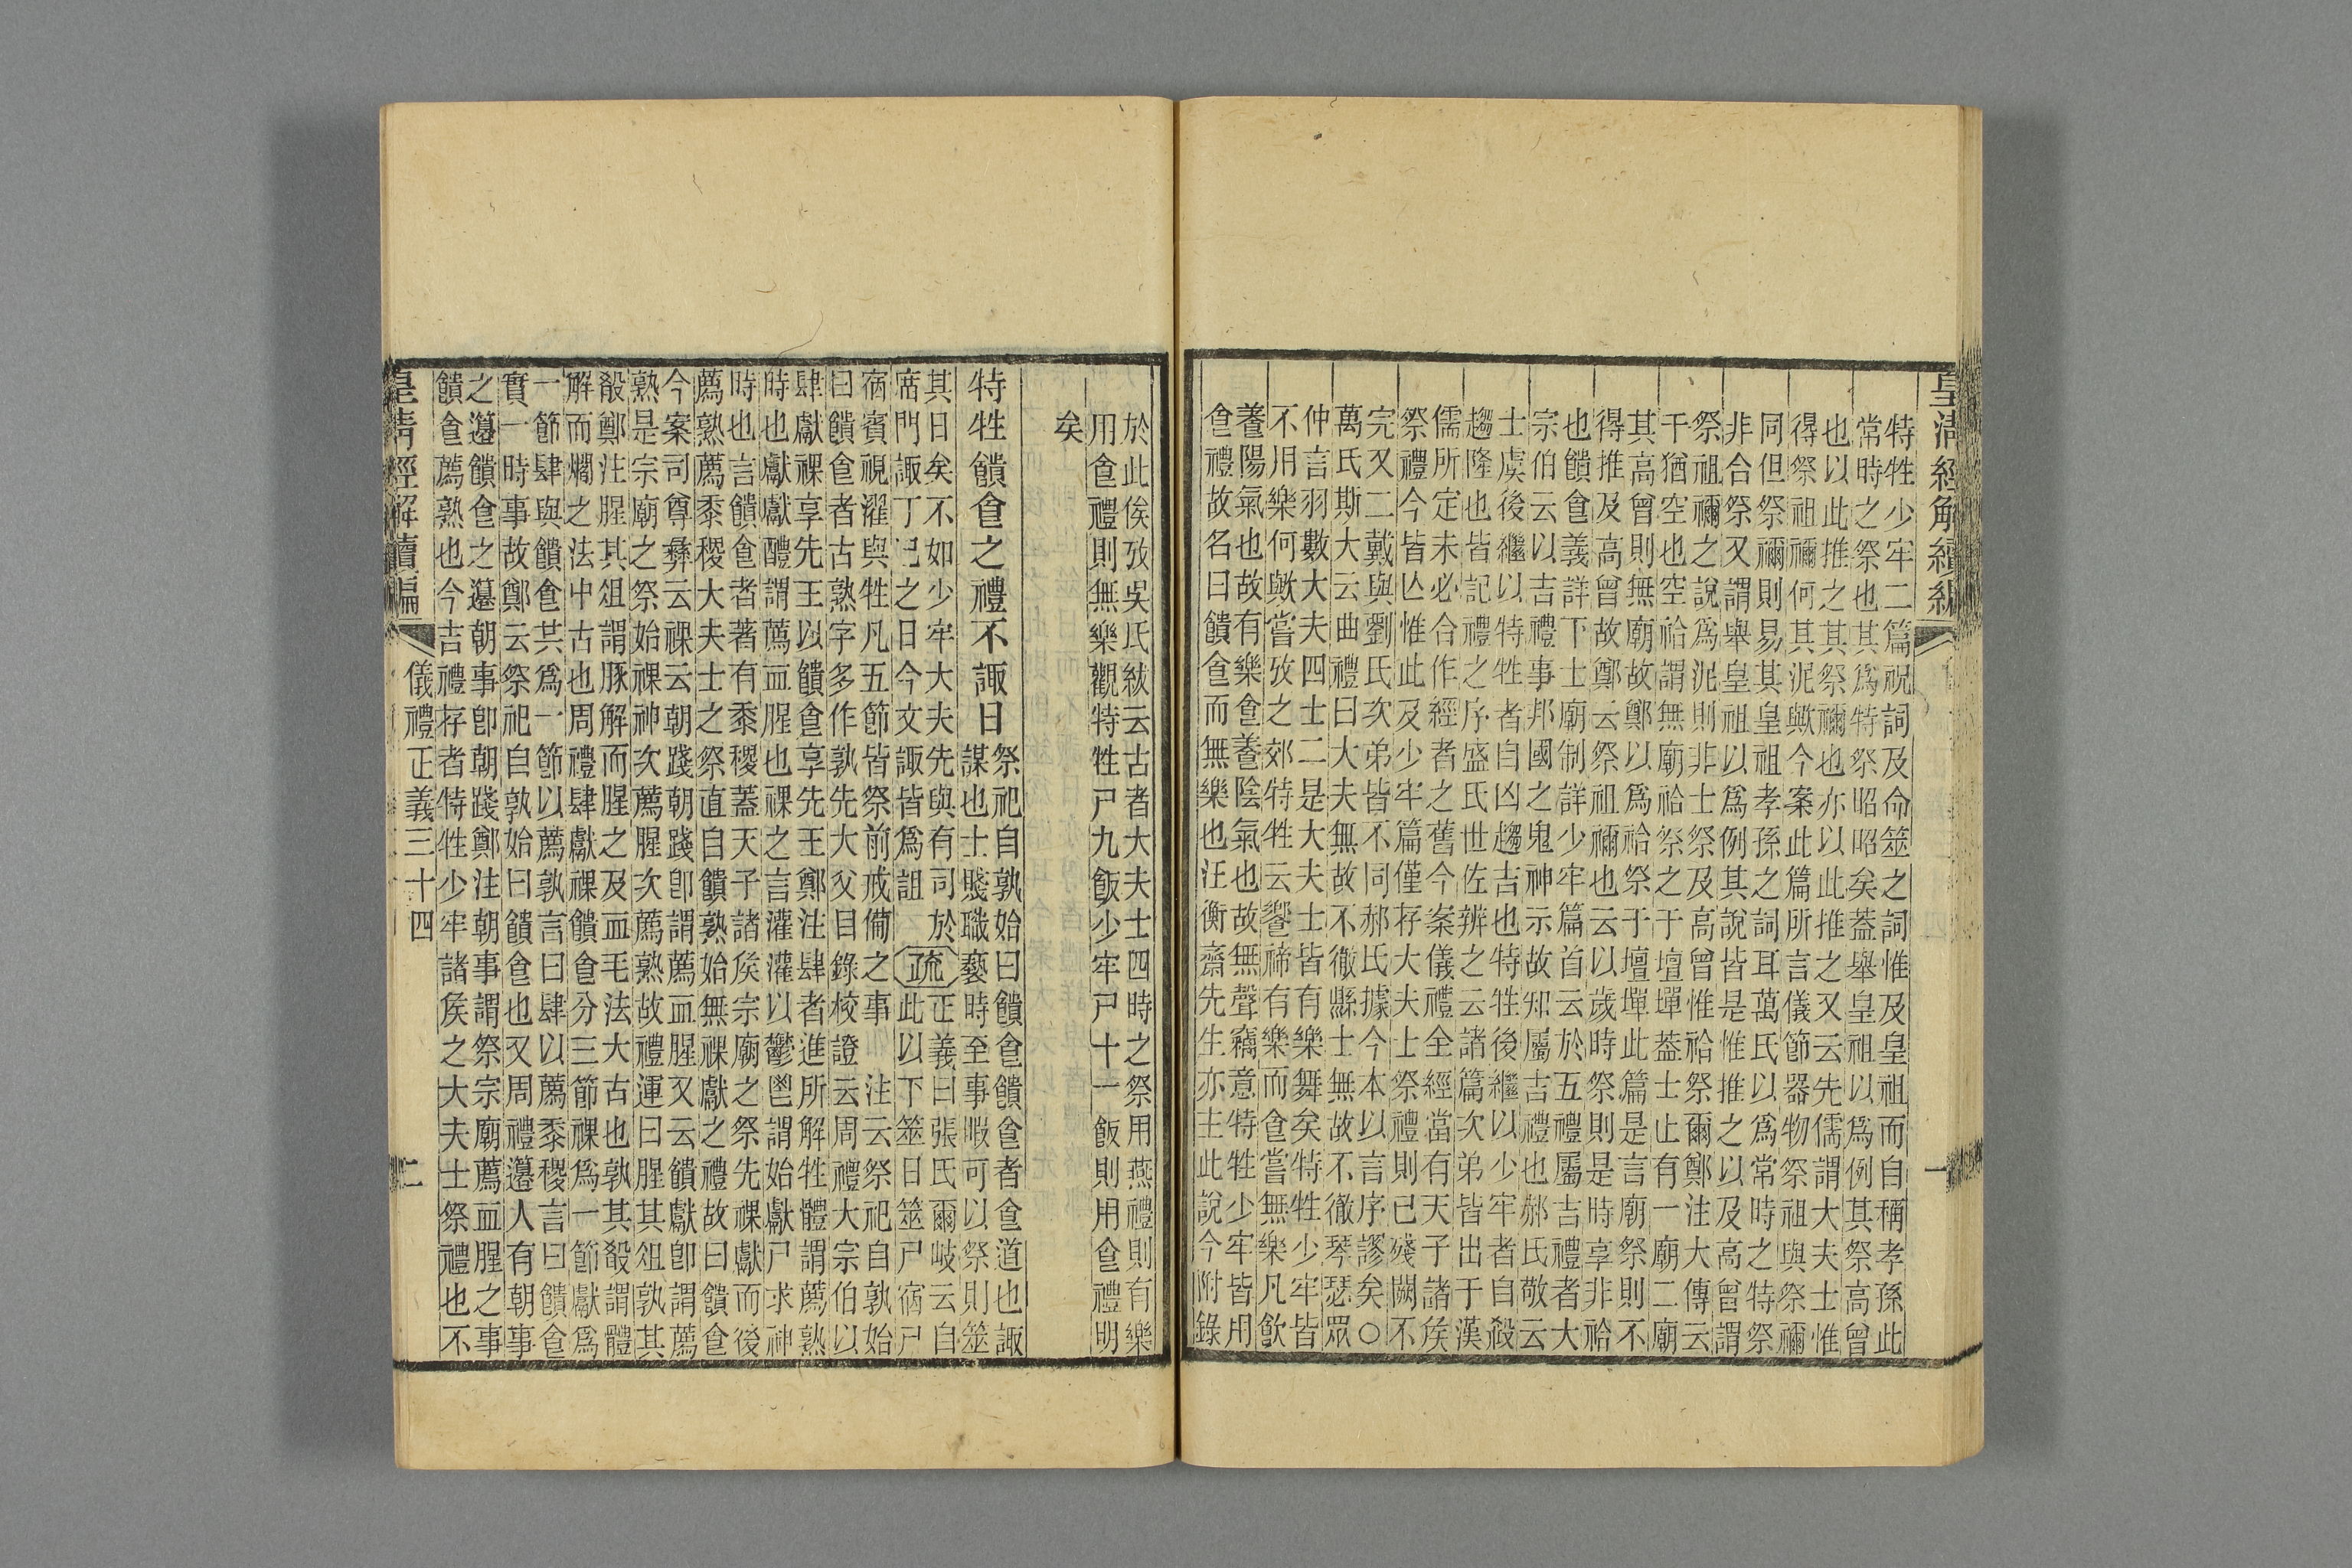 皇清經解續編
一
特牲少牢二篇祝詞及命筮之詞惟及皇祖而自稱孝孫此
常時之祭也其爲特祭昭昭矣蓋舉皇祖以爲例其祭高曾
也以此推之其祭禰也亦以此推之又云先儒謂大夫士惟
得祭祖禰何其泥歟今案此篇所言儀節器物祭祖與祭禰
同但祭禰則易其皇祖孝孫之詞耳萬氏以爲常時之特祭
非合祭又謂舉皇祖以爲例其說皆是惟推之以及高曾謂
祭祖禰之說爲泥則非士祭及高曾惟祫祭爾鄭注大傳云
干猶空也空祫謂無廟祫祭之于壇墠葢士止有一廟二廟
其高曾則無廟故鄭以爲祫祭于壇墠此篇是言廟祭則不
得推及高曾故鄭云祭祖禰也云以歲時祭則是時享非祫
也饋食義詳下士廟制詳少牢篇首云於五禮屬吉禮者大
宗伯云以吉禮事邦國之鬼神示故知屬吉禮也郝氏敬云
士虞後繼以特牲者自凶趨吉也特牲後繼以少牢者自殺
趨隆也皆記禮之序盛氏世佐辨之云諸篇次弟皆出于漢
儒所定未必合作經者之舊今案儀禮全經當有天子諸矦
祭禮今皆亾惟此及少牢篇僅存大夫士祭禮則已殘闕不
完又二戴與劉氏次弟皆不同郝氏據今本以言序謬矣○
萬氏斯大云曲禮曰大夫無故不徹縣士無故不徹琴瑟眾
仲言羽數大夫四士二是大夫士皆有樂舞矣特牲少牢皆
不用樂何歟嘗攷之郊特牲云饗禘有樂而食嘗無樂凡飮
養陽氣也故有樂食養陰氣也故無聲竊意特牲少牢皆用
食禮故名曰饋食而無樂也汪衡齋先生亦主此說今附錄
於此俟攷吳氏紱云古者大夫士四時之祭用燕禮則有樂
用食禮則無樂觀特牲尸九飯少牢尸十一飯則用食禮明
矣
特牲饋食之禮不諏日
祭祀自孰始曰饋食饋食者食道也諏
謀也士賤職褻時至事暇可以祭則筮
其日矣不如少牢大夫先與有司於
席門諏丁己之日今文諏皆爲詛
疏
正義曰張氏爾岐云自
此以下筮日筮尸宿尸
宿賓視濯與牲凡五節皆祭前戒備之事
注云祭祀自孰始
曰饋食者古熟字多作孰先大父目錄校證云周禮大宗伯以
肆獻祼享先王以饋食享先王鄭注肆者進所解牲體謂薦熟
時也獻獻醴謂薦血腥也祼之言灌灌以鬱鬯謂始獻尸求神
時也言饋食者著有黍稷蓋天子諸矦宗廟之祭先祼獻而後
薦熟薦黍稷大夫士之祭直自饋熟始無祼獻之禮故曰饋食
今案司尊彝云祼云朝踐朝踐卽謂薦血腥又云饋獻卽謂薦
熟是宗廟之祭始祼神次薦腥次薦熟故禮運曰腥其俎孰其
殽鄭注腥其俎謂豚解而腥之及血毛法大古也孰其殽謂體
解而爓之法中古也周禮肆獻祼饋食分三節祼爲一節獻爲
一節肆與饋食共爲一節以薦孰言曰肆以薦黍稷言曰饋食
實一時事故鄭云祭祀自孰始曰饋食也又周禮籩人有朝事
之籩饋食之籩朝事卽朝踐鄭注朝事謂祭宗廟薦血腥之事
饋食薦孰也今吉禮存者特牲少牢諸矦之大夫士祭禮也不
皇清經解續編
儀禮正義三十四
二